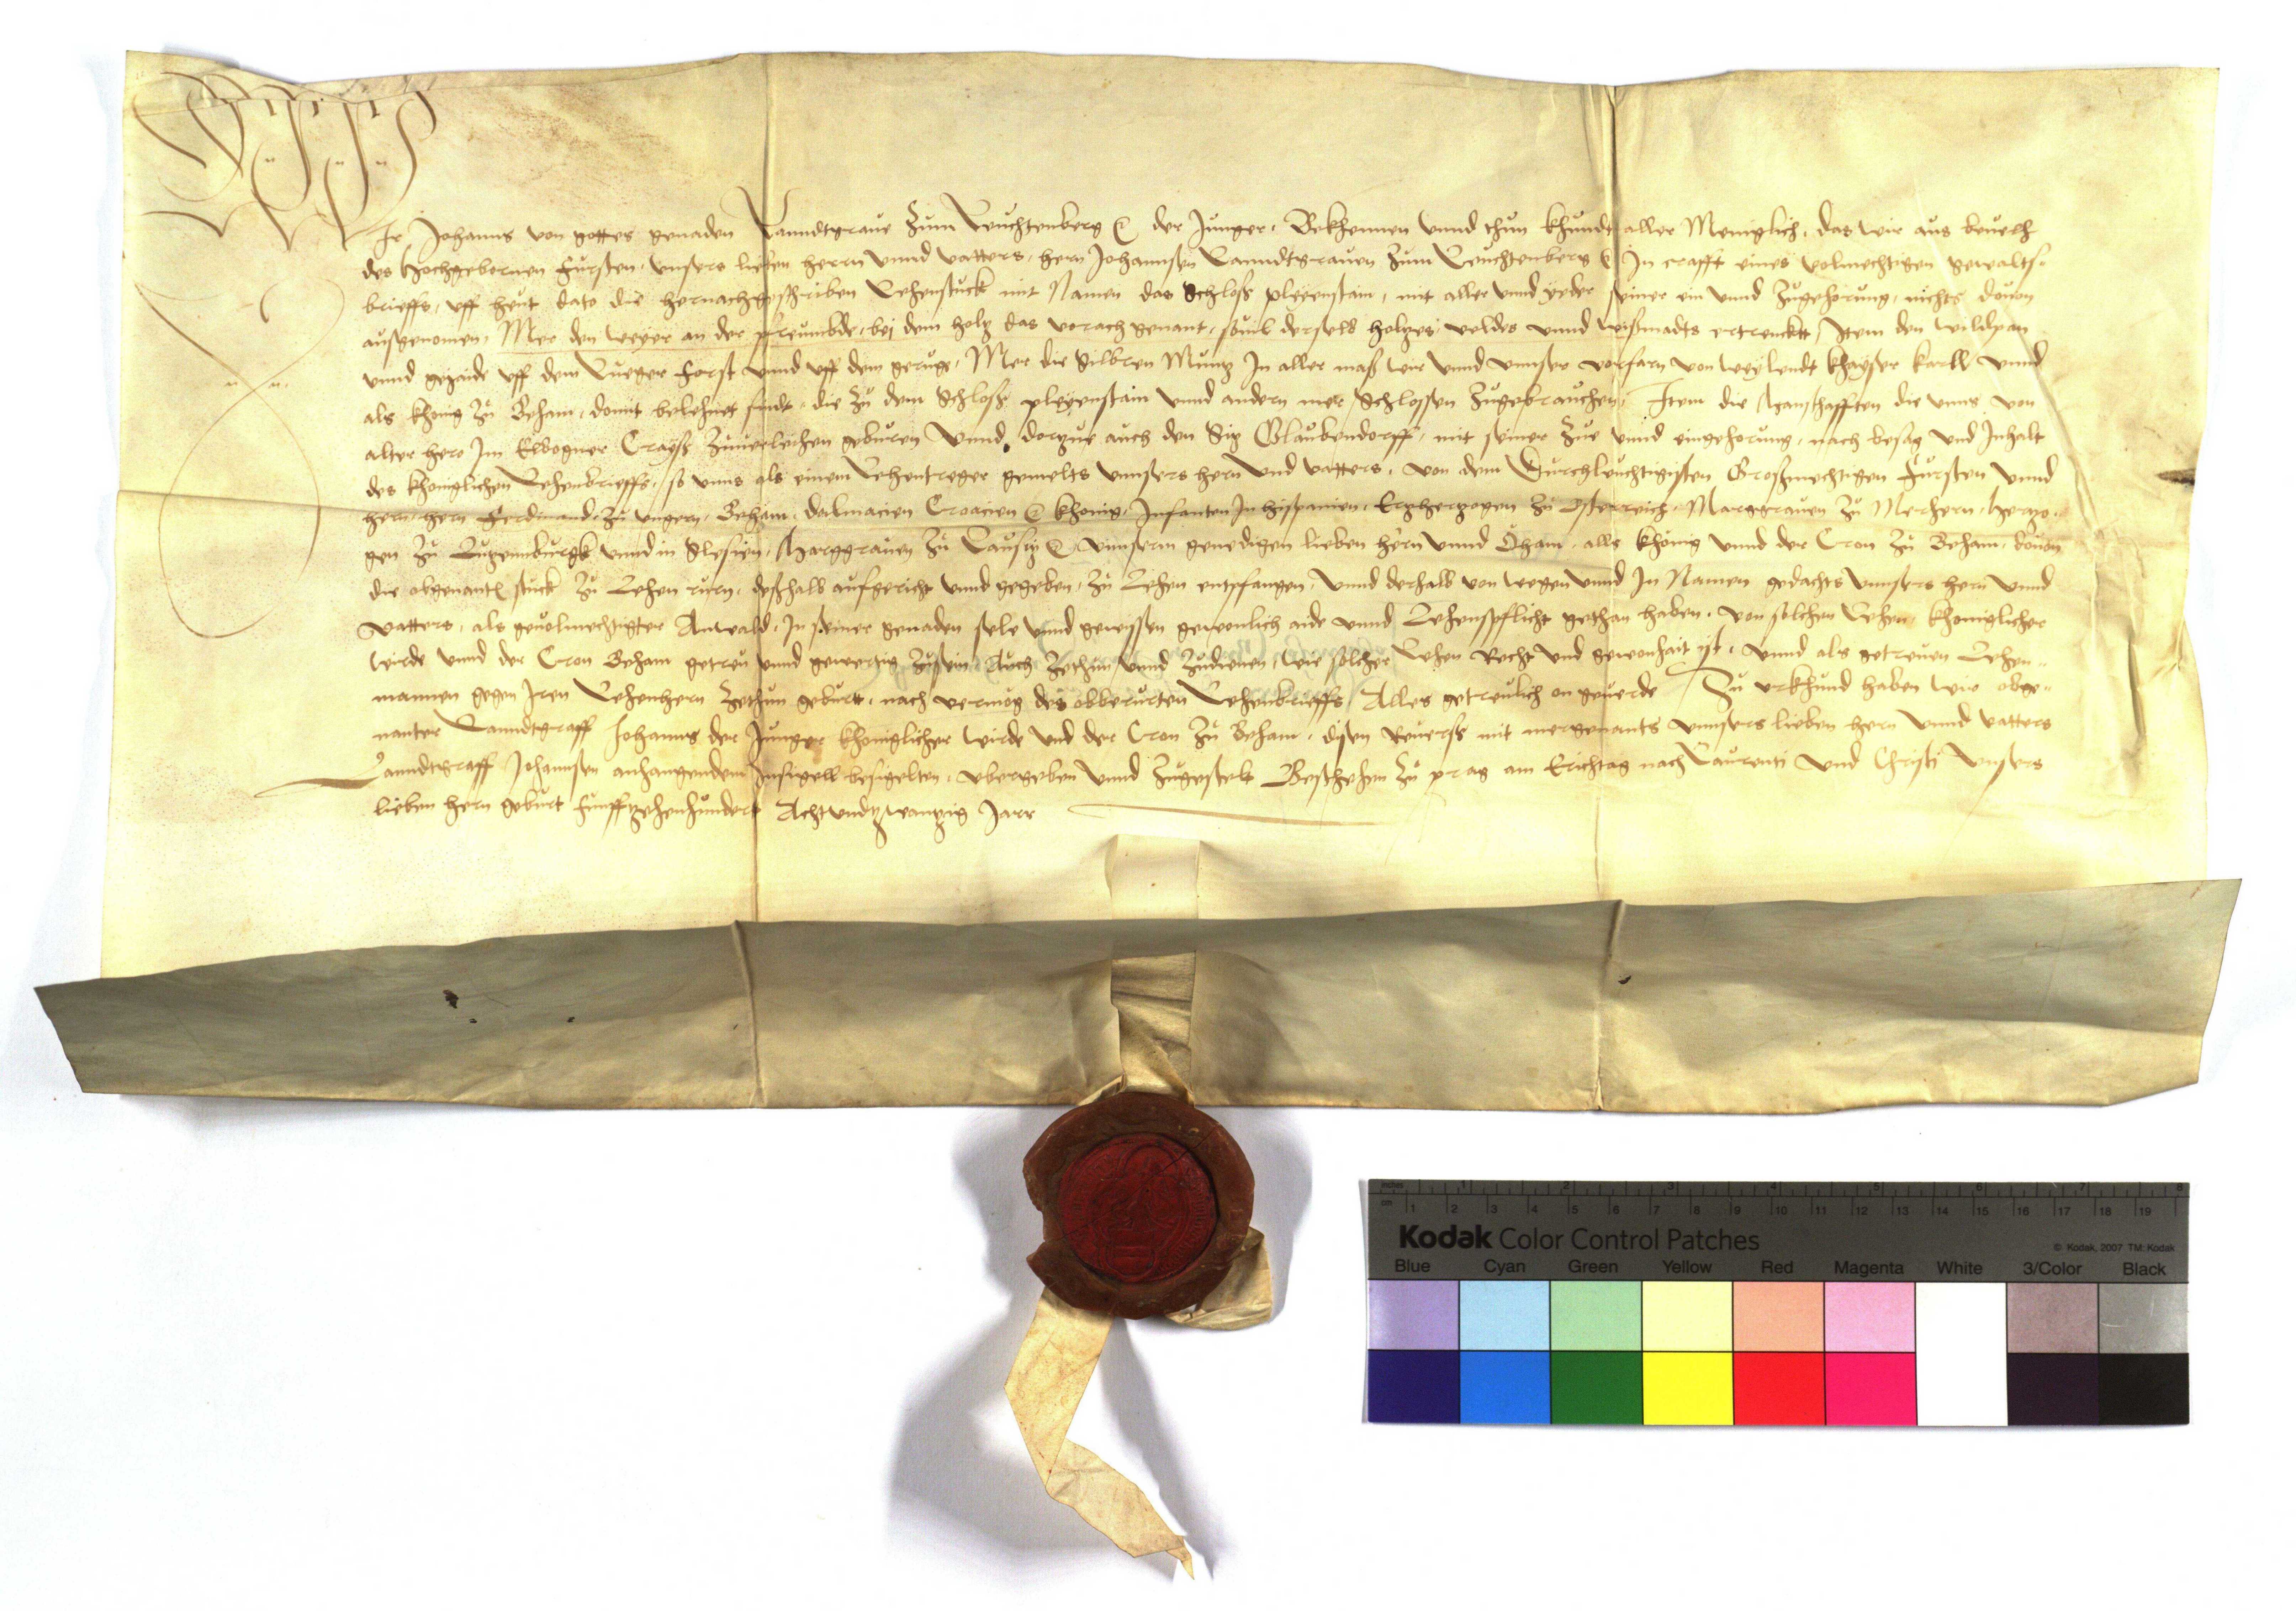 Wir Johanns von gottes genaden Lanndtgraue Zum Leuchtenberg &c der Junger. Bekhennen vnnd thun khundt aller Meniglich, das wir aus beuelh
des Hochgebornen Fursten, vnsers lieben herrn vnnd vatters, hern Johannsen Lanndtgrauen Zum Leuchtenberg &c In crafft eines volmechtigen gewalts
brieffs, vff heut dato die hernachgeschriben Lehenstuck mit Namen das Schloss pleyenstain, mit aller vnnd yeder seiner ein vnnd Zugehorung, nichts douon
ausgenomen, Mer den Weyer an der pfreumbde, bei dem holtz das vorach genant, souil derselb holtzes veldes vnnd wissmadts ertrencktt, Item den wildpan
vnnd gejaide vff dem Lueger Forst vnnd vff dem geruge, Mer die Silbren Muntz In aller mass wir vnnd vnnser vorfarn von weylendt khayser karll vnnd
als khonig Zu Beham, domit belehnet sindt, die Zu dem Schloss pleyenstain vnnd andern mer Schlossen Zugebrauchen, Item die Manschafften die vnns von
alter hero Im Elbogner Crayss Zuuerleihen geburen Vnnd dorzue auch den Sitz Glaubendorff, mit seiner Zue vnnd eingehorung, nach besag vnd Inhalt
des khoniglichen Lehenbrieffs, so vnns als einem Lehentreger gemelts vnnsers hern vnd vatters, von dem Durchleuchtigisten Grossmechtigen Fursten vnnd
hern, hern Ferdinand, Zu vngern, Beham, dalmacien Croacien &c khonig, Infanten In hispanien, Ertzhertzogen Zu Osterreich, Marggrauen Zu Merhern, hertzo
gen Zu Lutzemburgk vnnd in Slesien, Marggrauen Zu Lausitz &c vnnserm genedigen lieben hern vnnd Oham, alls khonig vnnd der Cron Zu Beham, douon
die obgenante stuck Zu Lehen rurn, desshalb aufgericht vnnd gegeben, Zu Lehen entpfangen, vnnd derhalb von wegen vnnd In Namen gedachts vnnsers hern vnnd
vatters, als geuolmechtigter Anwald, In seiner genaden sele vnnd gewissen gewonlich aide vnnd Lehenspflicht gethan haben, von solchen Lehen, khoniglicher
wirde vnnd der Cron Beham getreu vnnd gewertig Zusein, Auch Zethun vnnd Zudienen, wie solcher Lehen Recht vnd gewonhait ist, vnnd als getreuen Lehen
mannen gegen Iren Lehenhern Zethun geburtt, nach vermog des obberurten Lehenbrieffs, Alles getreulich on geuerde Zu vrkhund haben wir obge
nanter Lanndtgraff Johanns der Junger khoniglicher wirde vnd der Cron Zu Beham, disen Reuerss mit mergenants vnnsers lieben hern vnnd vatters
Lanndtgraff Johannsen anhangendem Insigell besigelten, vbergeben vnnd Zugestelt Beschehen Zu prag am Erichtag nach Laurenti vnd Christi vnsers
lieben hern geburt Funffzehenhundert Achtvndtzwantzig Jarr
inches 1 2 3 4 5 6 7 8
cm 1 2 3 4 5 6 7 8 9 10 11 12 13 14 15 16 17 18 19
Kodak Color Control Patches
© Kodak, 2007 TM: Kodak
Blue Cyan Green Yellow Red Magenta White 3/Color Black